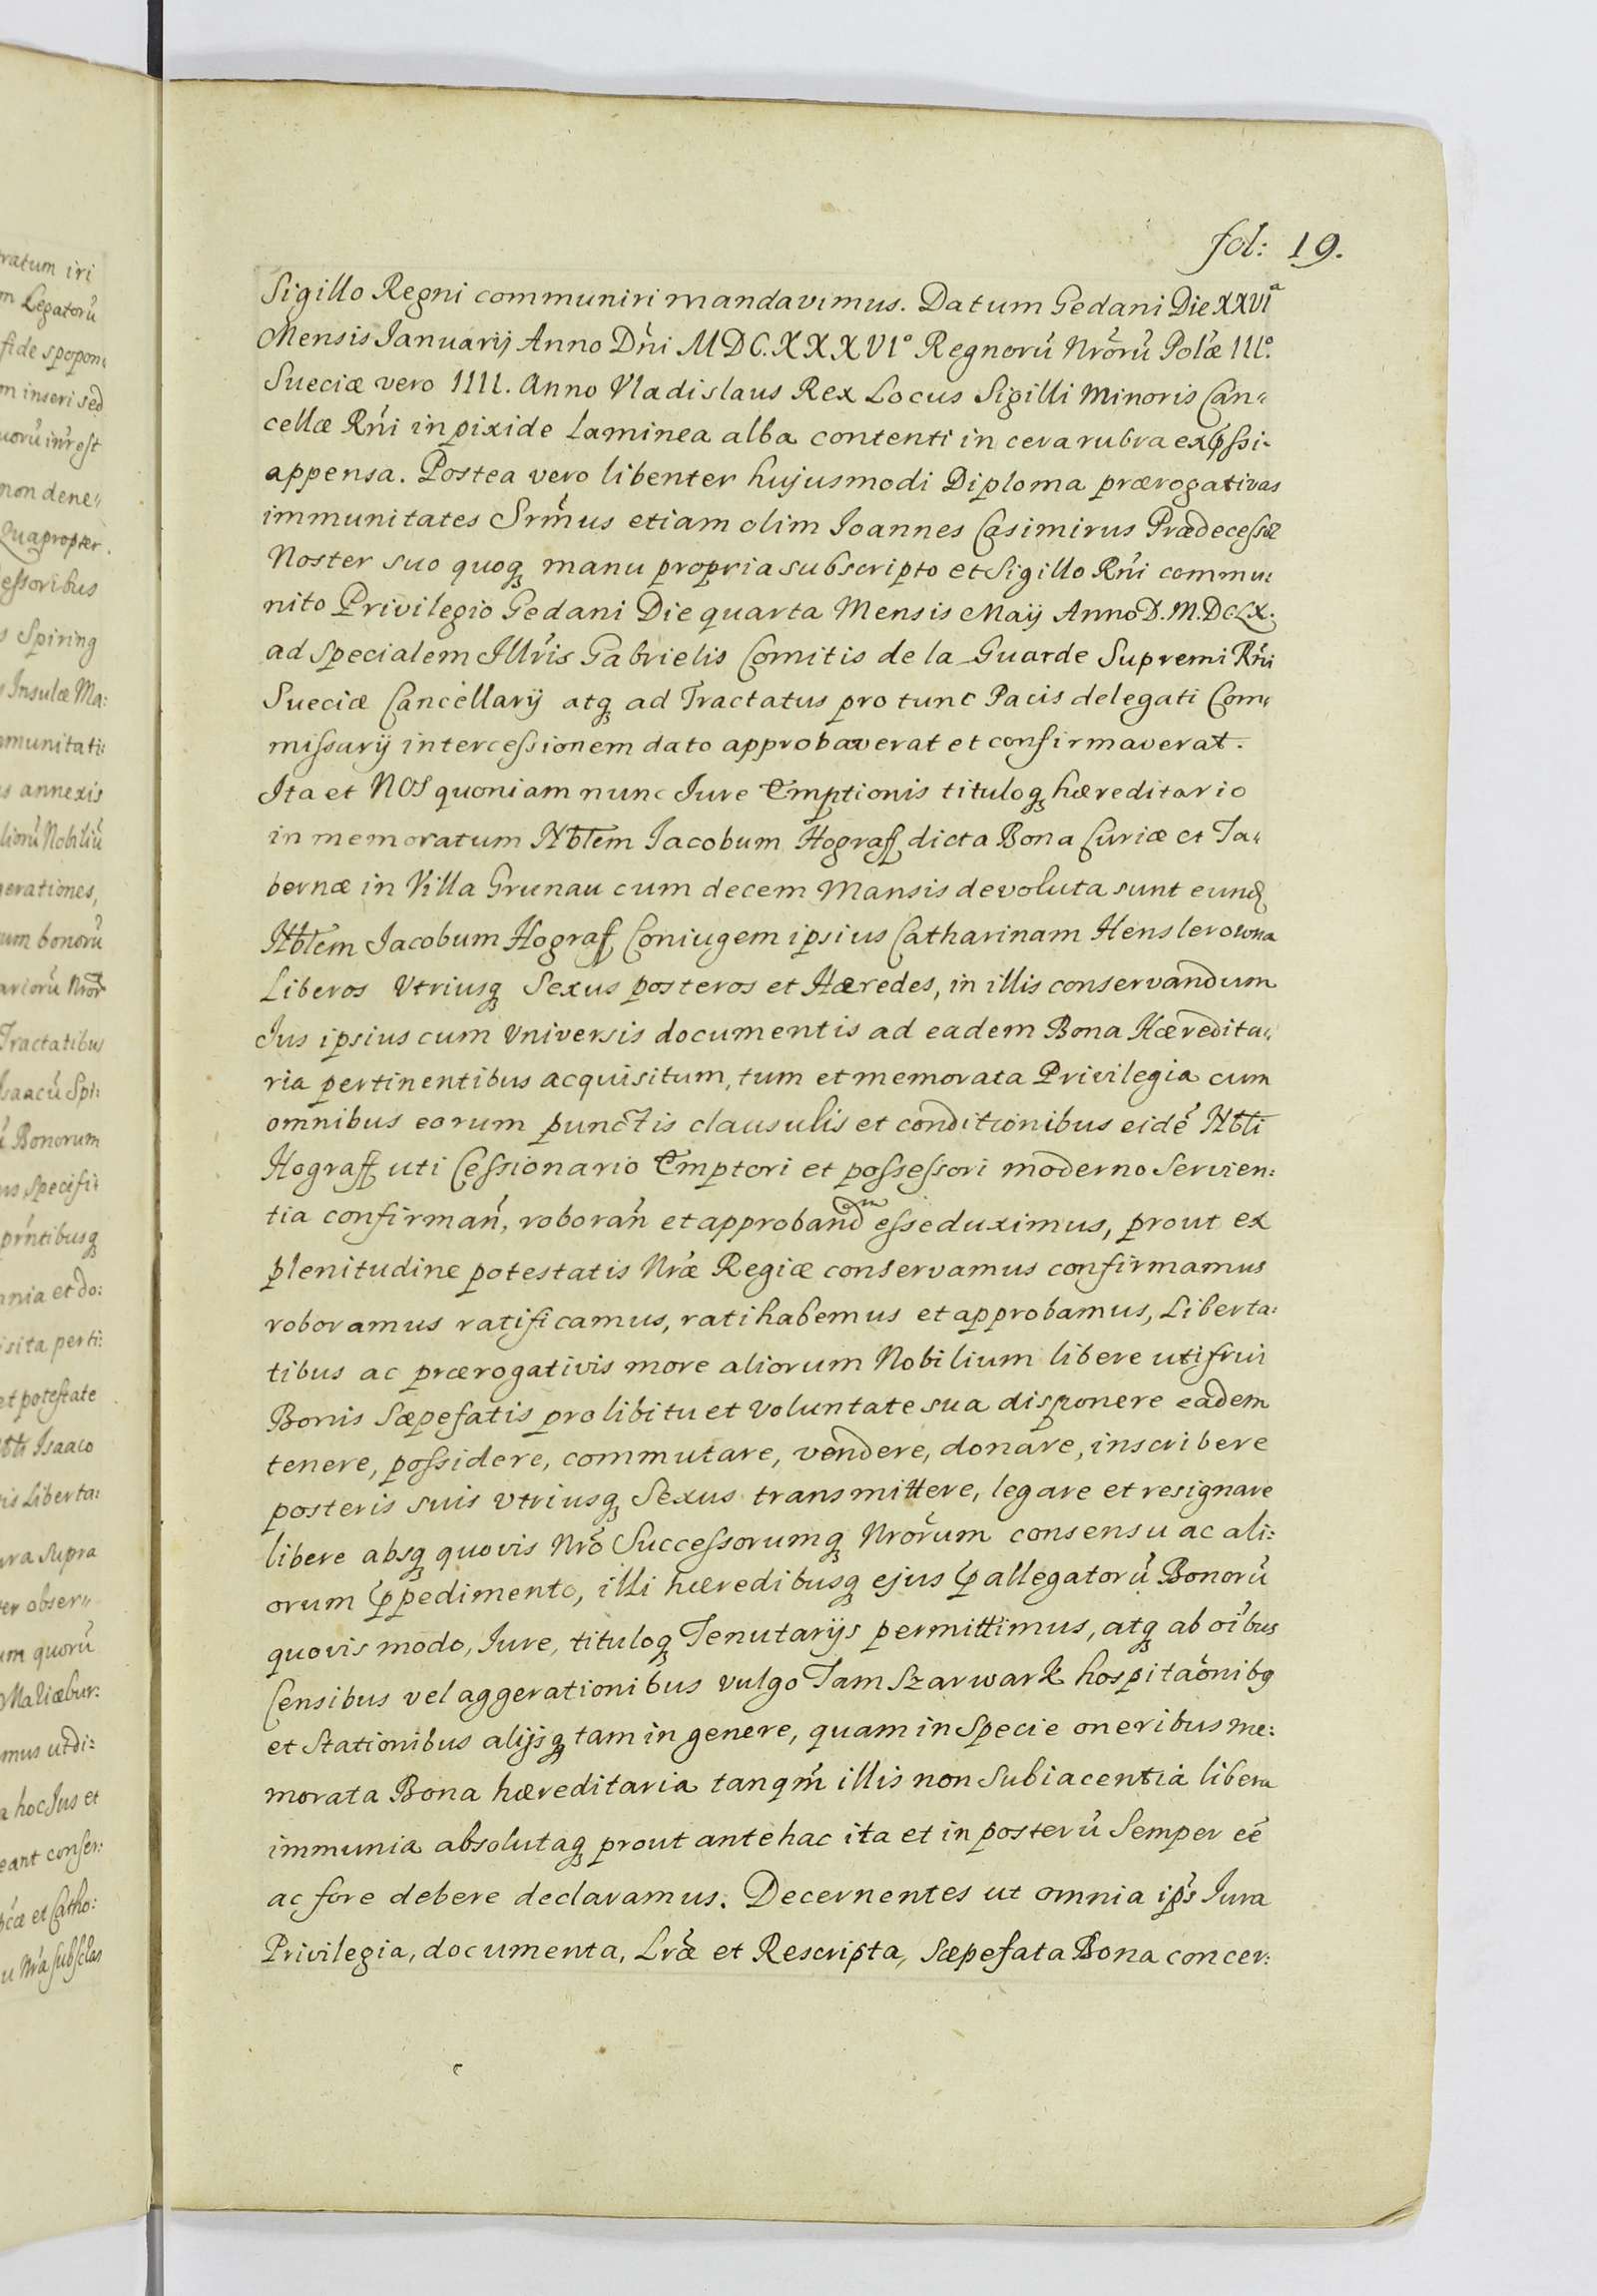 fol: 19.
Sigillo Regni communiri mandavimus. Datum Gedani Die XXVIª
Mensis Januarij Anno Dńi MDC.XXXVIº Regnorú Nrórú Polæ IIIº.
Sueciæ vero IIII. Anno Vladislaus Rex Locus Sigilli Minoris Can-
cellæ Rńi in pixide laminea alba contenti in cera rubra expssi-
appensa. Postea vero libenter hujusmodi Diploma prærogativas
immunitates Srḿus etiam olim Joannes Casimirus Prædecessor
Noster suo quoqȝ manu propria subscripto et Sigillo Rńi commu:
nito Privilegio Gedani Die quarta Mensis Maij Anno D.M.DCLX.
ad specialem Illŕis Gabrielis Comitis de la Guarde Supremi Rńi
Sueciæ Cancellarij atqȝ ad Tractatus pro tunc Pacis delegati Com-
missarij intercessionem dato approbaverat et confirmaverat.
Ita et NOS quoniam nunc Jure Emptionis tituloqȝ hæreditario
in memoratum Nblem Jacobum Hograff dicta Bona Curiæ et Ta-
bernæ in Villa Grunau cum decem Mansis devoluta sunt eund
Nblem Jacobum Hograf Coniugem ipsius Catharinam Henslerowna
Liberos Vtriusqȝ Sexus posteros et Hæredes, in illis conservandum
Jus ipsius cum Vniversis documentis ad eadem Bona Hæredita-
ria pertinentibus acquisitum, tum et memorata Privilegia cum
omnibus eorum punctis clausulis et conditionibus eidé Nbli
Hograff uti Cessionario Emptori et possessori moderno Servien:
tia confirmań, roborań et approband esse duximus, prout ex
plenitudine potestatis Nræ Regiæ conservamus confirmamus
roboramus ratificamus, ratihabemus et approbamus, Liberta:
tibus ac prærogativis more aliorum Nobilium libere uti frui
Bonis Sæpefatis pro libitu et voluntate sua disponere eadem
tenere, possidere, commutare, vendere, donare, inscribere
posteris suis vtriusqȝ Sexus transmittere, legare et resignare
libere absqȝ quovis Nró Successorumqȝ Nrórum consensu ac ali:
orum ppedimento, illi hæredibusqȝ ejus p allegatorú Bonorú
quovis modo, Jure, tituloqȝ Tenutarijs permittimus, atqȝ ab oíbus
Censibus vel aggerationibus vulgo Tam Szarwark hospitaónibqȝ
et Stationibus alijsqȝ tam in genere, quam in Specie oneribus me:
morata Bona hæreditaria tanqḿ illis non Subiacentia libera
immunia absolutaqȝ prout antehac ita et in posterú Semper eé
ac fore debere declaramus. Decernentes ut omnia ips Jura
Privilegia, documenta, Lræ et Rescripta, Sæpefata Bona concer: